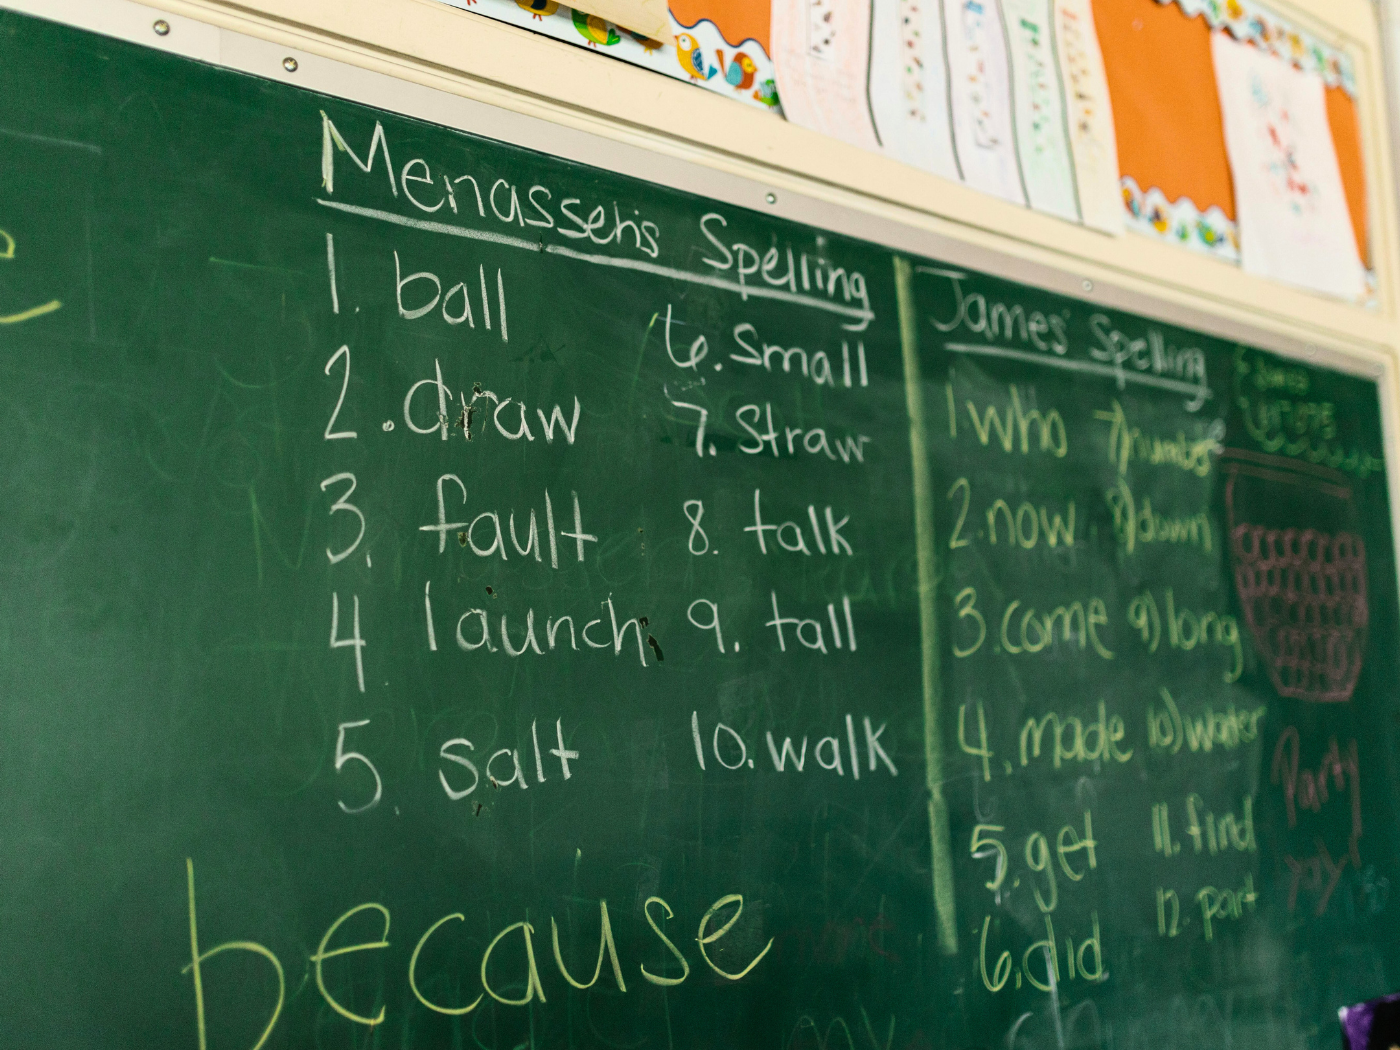 Menasseh's Spelling
1. ball
2. draw
3. fault
4. launch
5. salt
6. Small
7. Straw
8. talk
9. tall
10. walk
because
James' Spelling
1 who
2. now
3. come
4. made
5. get
6. did
7) number
8) down
9) long
10) water
11. find
12. part
Party
yay!